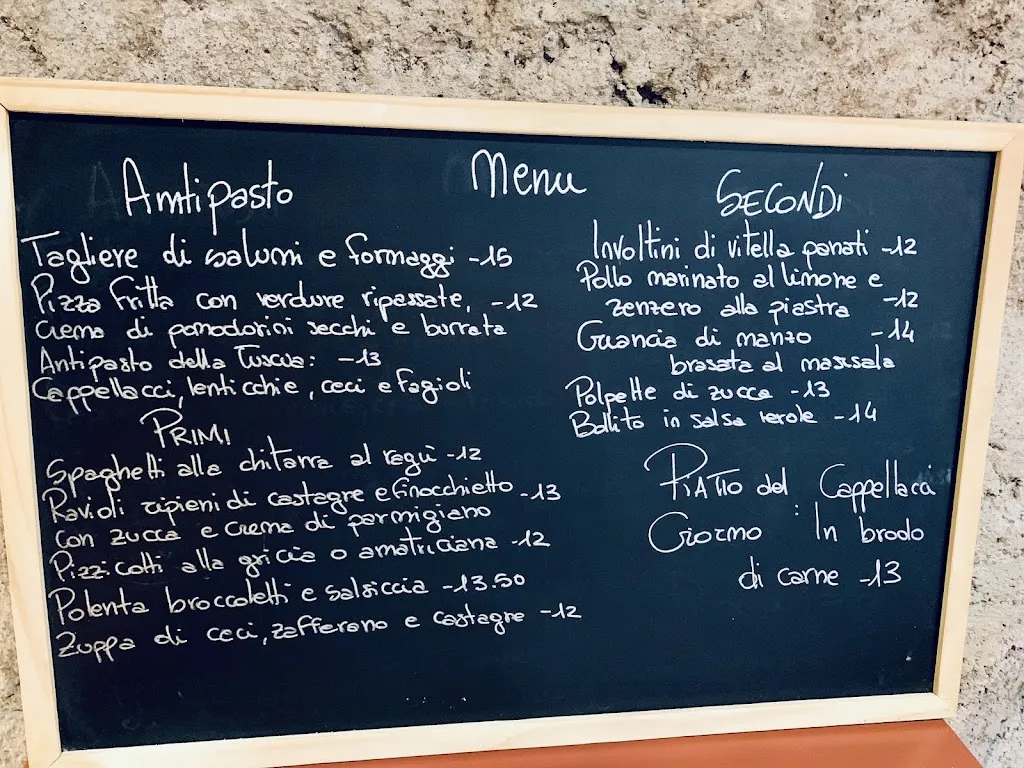 Menu
Antipasto
Tagliere di salumi e formaggi -15
Pizza Fritta con verdure ripassate, -12
crema di pomodorini secchi e burrata
Antipasto della Tuscia: -13
Cappellacci, lenticchie, ceci e fagioli
PRIMI
Spaghetti alla chitarra al ragù -12
Ravioli ripieni di castagne e finocchietto -13
con zucca e crema di parmigiano
Pizzicotti alla gricia o amatriciana -12
Polenta broccoletti e salsiccia -13.50
Zuppa di ceci, zafferano e castagne -12
SECONDI
Involtini di vitella panati -12
Pollo marinato al limone e
zenzero alla piastra -12
Guancia di manzo -14
brasata al marsala
Polpette di zucca -13
Bollito in salsa verde -14
PIATTO del Giorno :
Cappellacci
In brodo
di carne -13